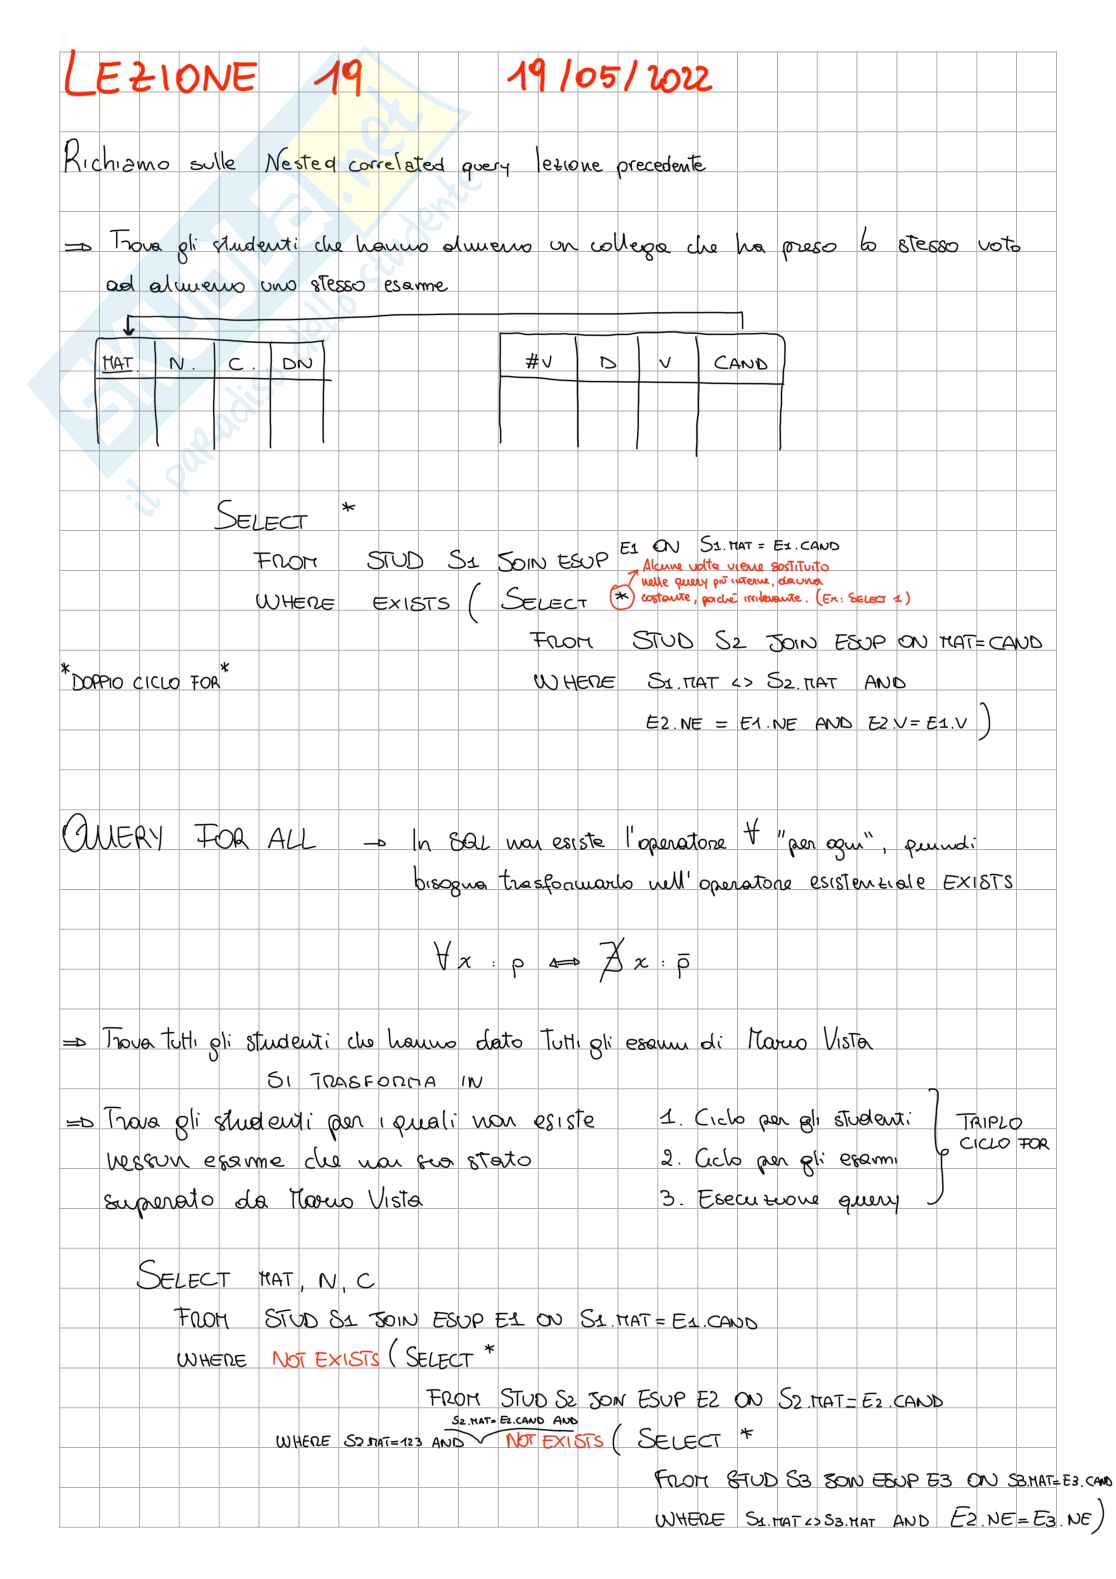 LEZIONE 19 19/05/2022
Richiamo sulle Nested correlated query lezione precedente
⇒ Trova gli studenti che hanno almeno un collega che ha preso lo stesso voto
ad almeno uno stesso esame
MAT. N. C. DN
#V D V CAND
SELECT *
FROM STUD S1 JOIN ESUP E1 ON S1.MAT = E1.CAND
Alcune volte viene sostituito
nelle query più interne, da una
costante, poiché irrilevante. (Es: SELECT 1)
WHERE EXISTS ( SELECT *
FROM STUD S2 JOIN ESUP ON MAT=CAND
*DOPPIO CICLO FOR*
WHERE S1.MAT <> S2.MAT AND
E2.NE = E1.NE AND E2.V = E1.V )
QUERY FOR ALL → In SQL non esiste l'operatore ∀ "per ogni", quindi
bisogna trasformarlo nell'operatore esistenziale EXISTS
∀x : p ⇔ ∄x : p̄
⇒ Trova tutti gli studenti che hanno dato tutti gli esami di Mario Vista
SI TRASFORMA IN
⇒ Trova gli studenti per i quali non esiste
nessun esame che non sia stato
superato da Mario Vista
1. Ciclo per gli studenti
2. Ciclo per gli esami
3. Esecuzione query
TRIPLO
CICLO FOR
SELECT MAT, N, C
FROM STUD S1 JOIN ESUP E1 ON S1.MAT = E1.CAND
WHERE NOT EXISTS ( SELECT *
FROM STUD S2 JOIN ESUP E2 ON S2.MAT = E2.CAND
S2.MAT = E2.CAND AND
WHERE S2.MAT=123 AND NOT EXISTS ( SELECT *
FROM STUD S3 JOIN ESUP E3 ON S3.MAT=E3.CAND
WHERE S1.MAT <> S3.MAT AND E2.NE = E3.NE )
SKUOLA.net
il paradiso dello studente